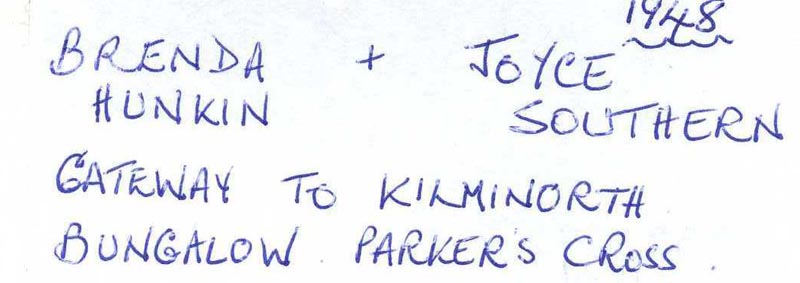 1948
BRENDA + JOYCE
HUNKIN SOUTHERN
GATEWAY TO KILMINORTH
BUNGALOW. PARKER'S CROSS.